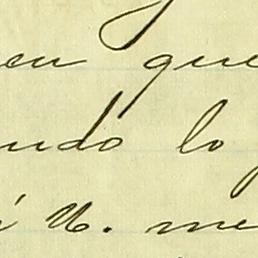 en que
ndo lo
í U. me